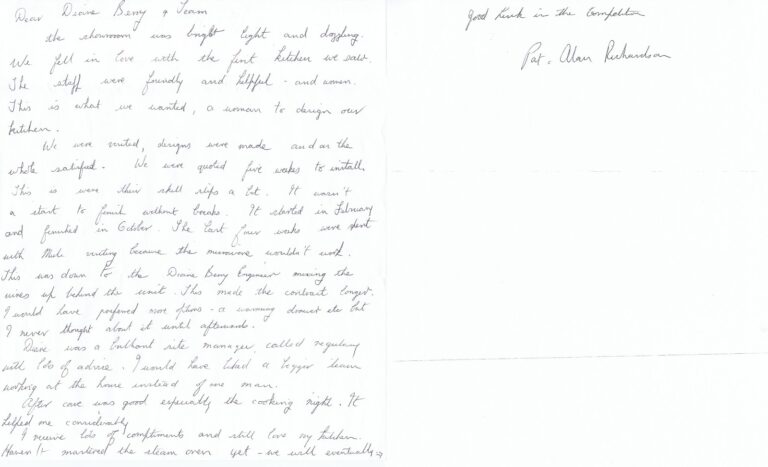 Dear Diane Berry & Team
the showroom was bright light and dazzling.
We fell in love with the first kitchen we saw.
The staff were friendly and helpful - and women.
This is what we wanted, a woman to design our
kitchen.
We were visited, designs were made and on the
whole satisfied. We were quoted five weeks to install.
This is were their skill slips a bit. It wasn't
a start to finish without breaks. It started in February
and finished in October. The last four weeks were spent
with Miele visiting because the microwave wouldn't work.
This was down to the Diane Berry Engineer mixing the
wires up behind the unit. This made the contract longer.
I would have preferred more options - a warming drawer etc but
I never thought about it until afterwards.
Diane was a brilliant site manager, called regularly
with lots of advice. I would have liked a bigger team
working at the house instead of one man.
After care was good especially the cooking night. It
helped me considerably
I receive lots of compliments and still love my kitchen.
Haven't mastered the steam oven yet - we will eventually
Good luck in the Competition
Pat & Alan Richardson